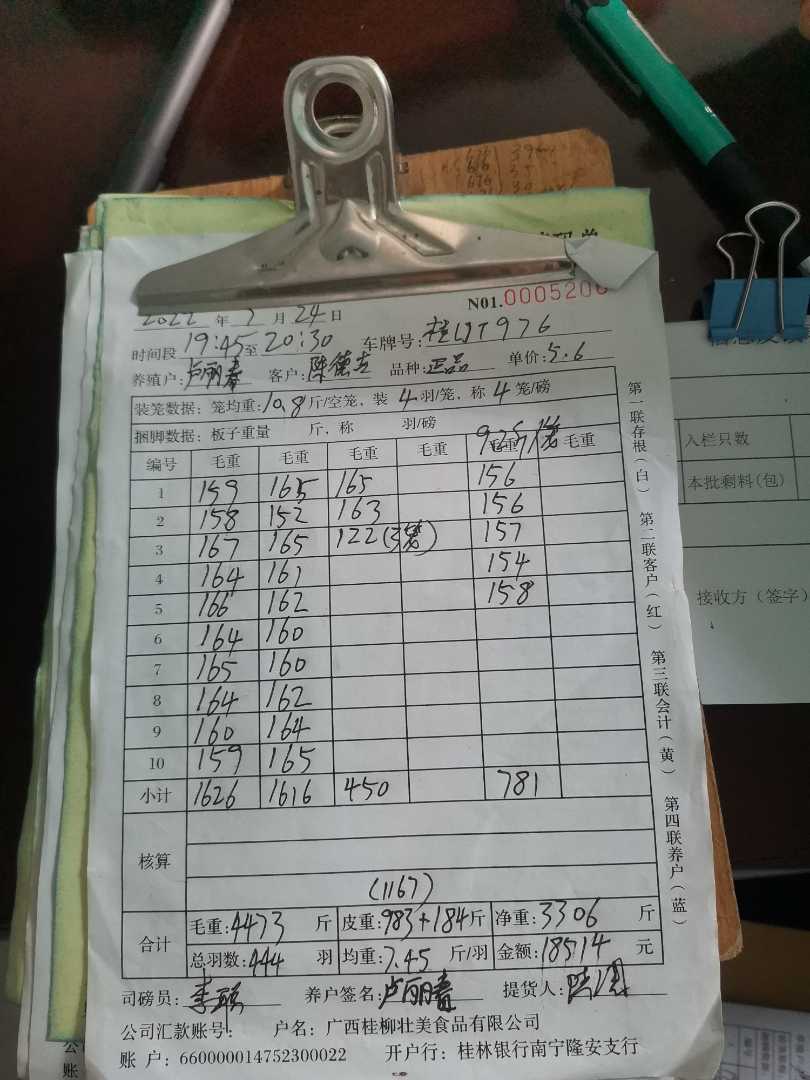 N01.0005206
2022 年 2 月 24 日
时间段 19:45 至 20:30 车牌号:
养殖户:卢丽春 客户:陈德志 品种:正品 单价:5.6
装笼数据: 笼均重:10.8斤/空笼, 装 4 羽/笼, 称 4 笼/磅
捆脚数据: 板子重量 斤, 称 羽/磅
编号 毛重 毛重 毛重 毛重 毛重 毛重
1 159 165 165 156
2 158 152 163 156
3 167 165 122(3笼) 157
4 164 161 154
5 166 162 158
6 164 160
7 165 160
8 164 162
9 160 164
10 159 165
小计 1626 1616 450 781
核算
(1167)
合计
毛重:4473 斤 皮重:983+184斤 净重:3306 斤
总羽数:444 羽 均重:7.45 斤/羽 金额:18514 元
司磅员: 养户签名:卢丽春 提货人:
公司汇款账号: 户名: 广西桂柳壮美食品有限公司
账 户: 660000014752300022 开户行: 桂林银行南宁隆安支行
第一联存根(白) 第二联客户(红) 第三联会计(黄) 第四联养户(蓝)
入栏只数
本批剩料(包)
接收方(签字)